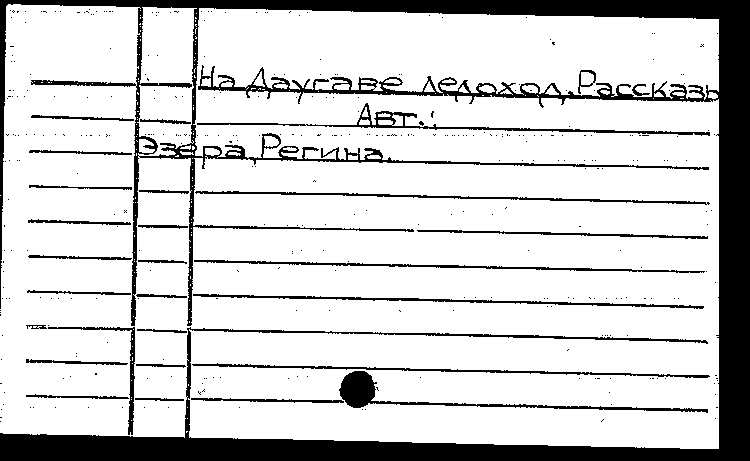 На Даугаве ледоход. Рассказы
Авт.:
Эзера, Регина.